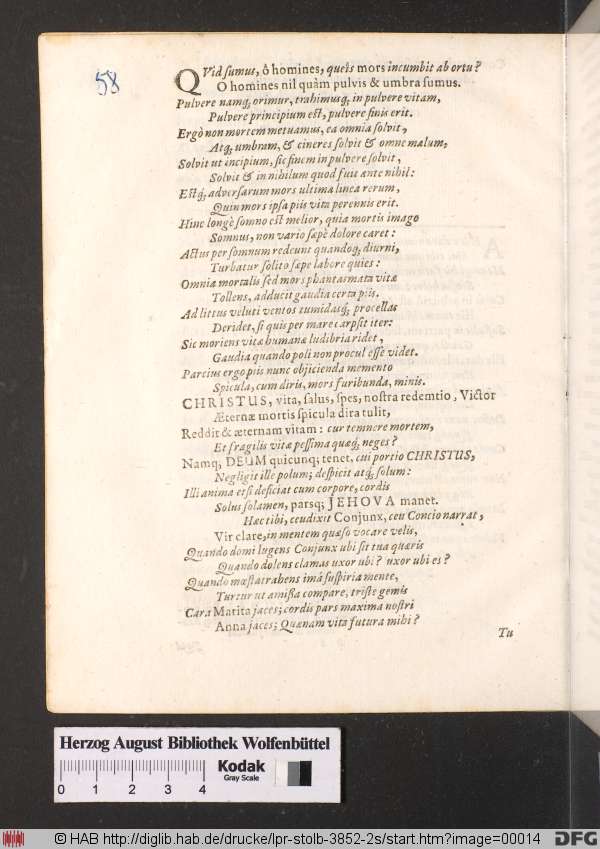 58
QVid sumus, ô homines, queîs mors incumbit ab ortu?
O homines nil quàm pulvis & umbra sumus.
Pulvere namq; orimur, trahimusq; in pulvere vitam,
Pulvere principium est, pulvere finis erit.
Ergò non mortem metuamus, ea omnia solvit,
Atq; umbram, & cineres solvit & omne malum,
Solvit ut incipium, sic finem in pulvere solvit,
Solvit & in nihilum quod fuit ante nihil:
Estq; adversarum mors ultima linea rerum,
Quin mors ipsa piis vita perennis erit.
Hinc longè somno est melior, quia mortis imago
Somnus, non vario sæpè dolore caret:
Actus per somnum redeunt quandoq; diurni,
Turbatur solito sæpe labore quies:
Omnia mortalis sed mors phantasmata vitæ
Tollens, adducit gaudia certa piis.
Ad littus veluti ventos tumidasq; procellas
Deridet, si quis per mare carpsit iter:
Sic moriens vitæ humanæ ludibria ridet,
Gaudia quando poli non procul esse videt.
Parcius ergo piis nunc objicienda memento
Spicula, cum diris, mors furibunda, minis.
CHRISTUS, vita, salus, spes, nostra redemtio, Victor
Æternæ mortis spicula dira tulit,
Reddit & æternam vitam: cur temnere mortem,
Et fragilis vitæ pessima quæq; neges?
Namq; DEUM quicunq; tenet, cui portio CHRISTUS,
Negligit ille polum; despicit atq; solum:
Illi anima etsi deficiat cum corpore, cordis
Solus solamen, parsq; JEHOVA manet.
Hæc tibi, ceu dixit Conjunx, ceu Concio narrat,
Vir clare, in mentem quæso vocare velis,
Quando domi lugens Conjunx ubi sit tua quæris
Quando dolens clamas uxor ubi? uxor ubi es?
Quando mœsta trahens imâ suspiria mente,
Turtur ut amissa compare, triste gemis
Cara Marita jaces; cordis pars maxima nostri
Anna jaces; Quænam vita futura mihi?
Tu
Herzog August Bibliothek Wolfenbüttel
Kodak
Gray Scale
0 1 2 3 4
© HAB http://diglib.hab.de/drucke/lpr-stolb-3852-2s/start.htm?image=00014
DFG